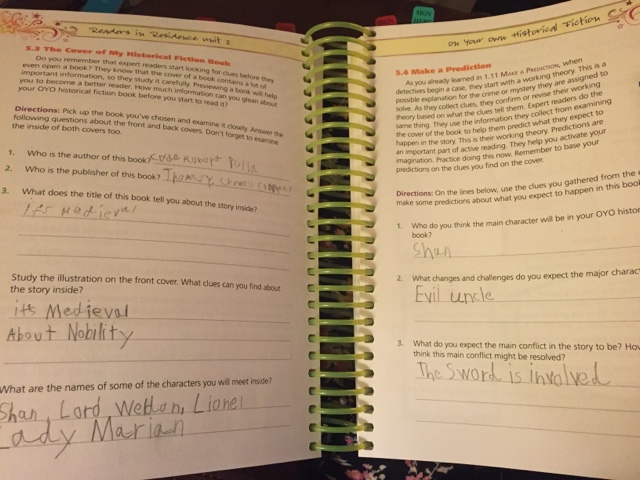 Readers in Residence Unit 2
5.3 The Cover of My Historical Fiction Book
Do you remember that expert readers start looking for clues before they
even open a book? They know that the cover of a book contains a lot of
important information, so they study it carefully. Previewing a book will help
you to become a better reader. How much information can you glean about
your OYO historical fiction book before you start to read it?
Directions: Pick up the book you've chosen and examine it closely. Answer the
following questions about the front and back covers. Don't forget to examine
the inside of both covers too.
1. Who is the author of this book? Robert
2. Who is the publisher of this book? Thomas Y.
3. What does the title of this book tell you about the story inside?
Its Medieval
Study the illustration on the front cover. What clues can you find about
the story inside?
its Medieval
About Nobility
What are the names of some of the characters you will meet inside?
Shan, Lord Weldon, Lionel
Lady Marian
SIGN
On Your Own Historical Fiction
5.4 Make a Prediction
As you already learned in 1.11 Make a Prediction, when
detectives begin a case, they start with a working theory. This is a
possible explanation for the crime or mystery they are assigned to
solve. As they collect clues, they confirm or revise their working
theory based on what the clues tell them. Expert readers do the
same thing. They use the information they collect from examining
the cover of the book to help them predict what they expect to
happen in the story. This is their working theory. Predictions are
an important part of active reading. They help you activate your
imagination. Practice doing this now. Remember to base your
predictions on the clues you find on the cover.
Directions: On the lines below, use the clues you gathered from the
make some predictions about what you expect to happen in this boo
1. Who do you think the main character will be in your OYO histor
book?
Shan
2. What changes and challenges do you expect the major charac
Evil uncle
3. What do you expect the main conflict in the story to be? How
think this main conflict might be resolved?
The Sword is involved